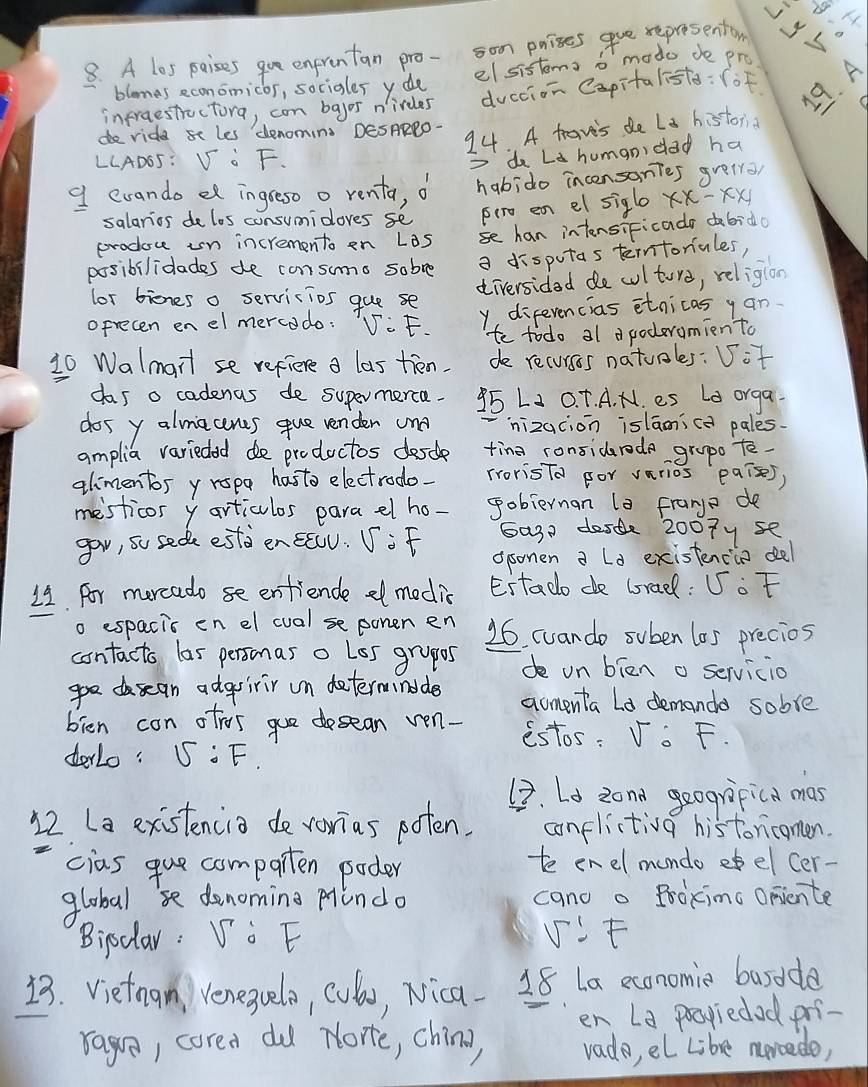 8. A los paises que enfrentan pro-
blemas económicos, sociales y de
infraestructura, con bajos niveles
de vida se les denomina DESARRO-
LLADOS: V o F.
9 cuando el ingreso o renta, ó
salarios de los consumidores se
produce un incremento en Las
posibilidades de consumo sobre
los bienes o servicios que se
ofrecen en el mercado: V o F.
10 Walmart se refiere a las tien-
das o cadenas de supermerca-
dos y almacenes que venden una
amplia variedad de productos desde
alimentos y ropa hasta electrodo-
mésticos y artículos para el ho-
gar, su sede está en EEUU. V o F
11. Por mercado se entiende el medio
o espacio en el cual se ponen en
contacto las personas o Los grupos
que desean adquirir un determindado
bien con otros que desean ven-
derlo: V o F.
12 La existencia de varias poten-
cias que comparten poder
global se denomina Mundo
Bipolar: V o F
13. Vietnam, Venezuela, Cuba, Nica-
ragua, corea del Norte, China,
son países que representan
el sistema o modo de pro-
ducción Capitalista: V o F.
14. A través de La historia
de La humanidad ha
habido incensantes guerra
pero en el siglo XX-XXI
se han intensificado debido
a disputas territoriales,
diversidad de cultura, religión
y diferencias étnicas y an-
te todo al apoderamiento
de recursos naturales: V o F
15 La O.T.A.N. es La orga-
nización islámica pales-
tina considerada grupo te-
rrorista por varios países,
gobiernan la franja de
Gaza desde 2007 y se
oponen a La existencia del
Estado de Israel: V o F
16. cuando suben los precios
de un bien o servicio
aumenta La demanda sobre
éstos: V o F.
17. La zona geográfica más
conflictiva históricamen-
te en el mundo es el Cer-
cano o Próximo Oriente
V o F
18 La economía basada
en La propiedad pri-
vada, el Libre mercado,
19. A